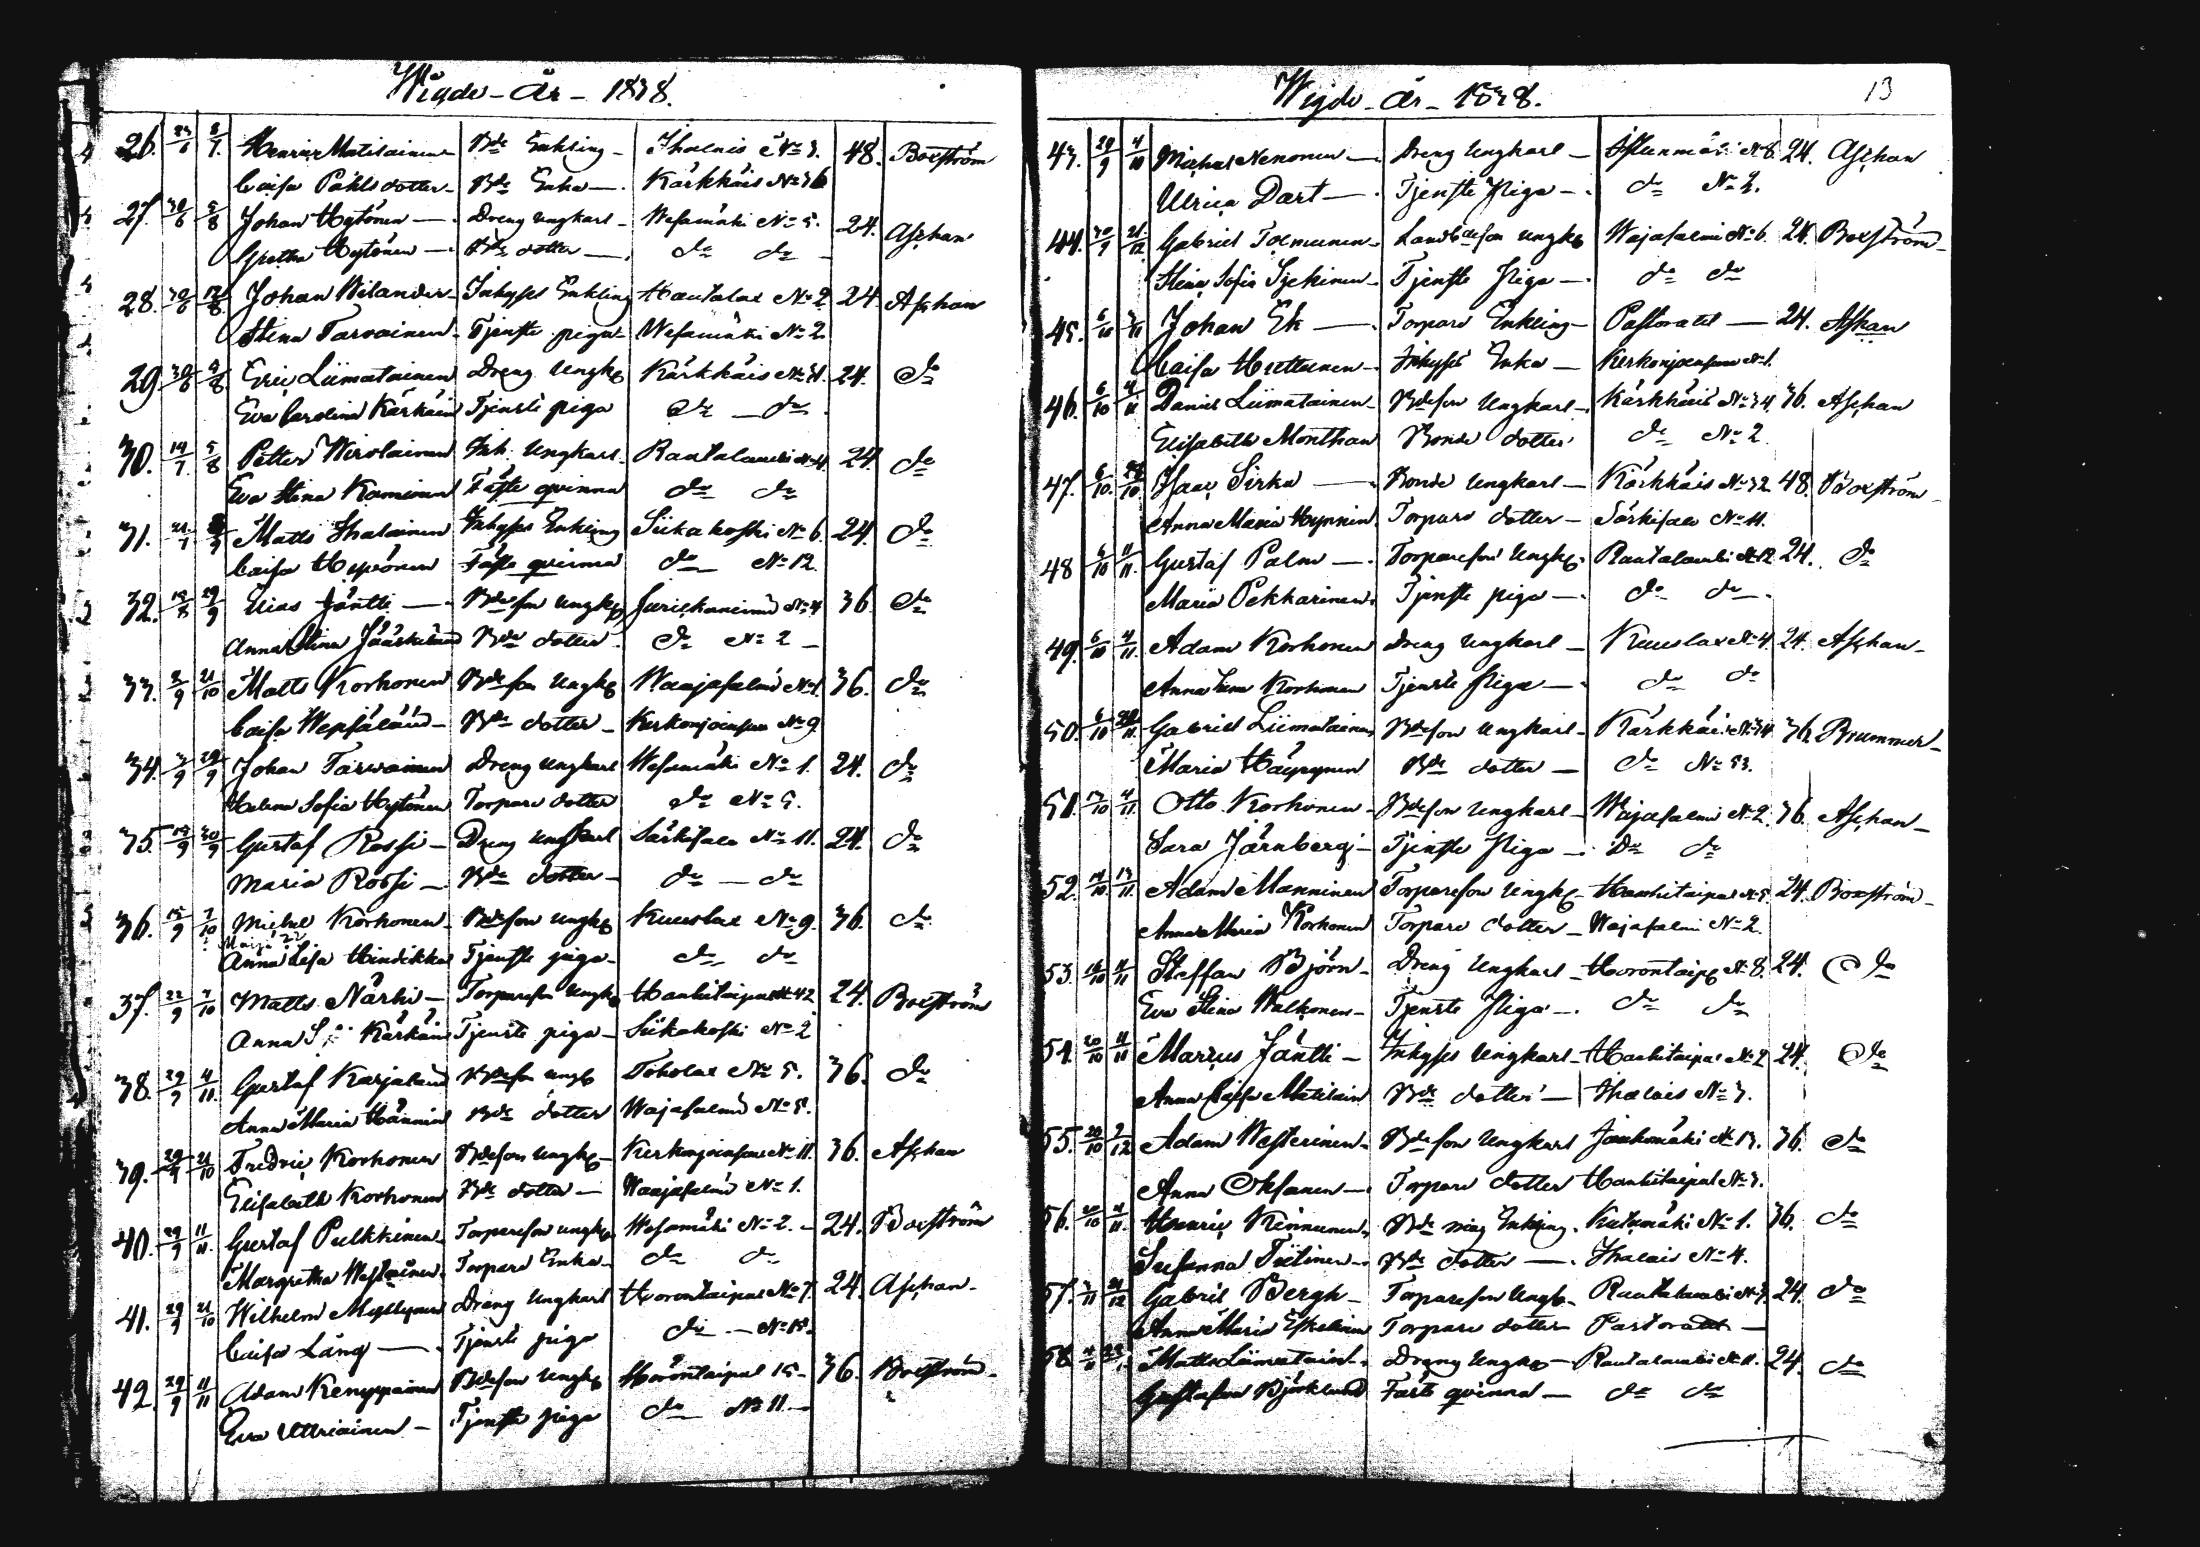 Wigde - År - 1838.
26. 24/6 8/7. Henric Matilainen Bde Enkling - Ihalais No 3. 48. Boxström
Caisa Påhls dotter - Bde Enka - Kärkkäis No 36
27. 30/6 5/8 Johan Hytönen - Dreng Ungkarl - Wesamäki No 5. 24. Aschan
Gretha Hytönen - Bde dotter - do do -
28. 30/6 12/8 Johan Wilander - Inhyses Enkling Hautalax No 2 24. Aschan
Stina Tarvainen - Tjenste piga - Wesamäki No 2
29. 30/6 9/8 Eric Liimatainen Dreng Ungk Kärkkäis No 31. 24. do
Eva Carolina Kärkäin Tjenste piga do - do
30. 14/7 5/8 Petter Wirolainen Inh. Ungkarl Rautalambi No 4. 24. do
Eva Stina Kaminen Fäste qvinna do do
31. 21/7 /9 Matts Ihalainen Inhyses Enkling Siikakoski No 6. 24. do
Caisa Hyvönen Fäste qvinna do No 12.
32. 12/8 29/9 Elias Jäntti - Bdeson Ungk No 4 36. do
Anna Stina Jääskeläind Bde dotter do No 2 -
33. 2/9 21/10 Matts Korhonen Bdeson Ungk Waajasalmi No 1. 36. do
Caisa Wepsäläind - Bde dotter - Kerkonjoensuu No 9
34. 3/9 29/9 Johan Tarwainen Dreng Ungkarl Wesamäki No 1. 24. do
Helena Sofia Hytönen Torpare dotter do No 5.
35. 13/9 30/9 Gustaf Rossi - Dreng Ungkarl Särkisalo No 11. 24. do
Maria Rossi - Bde dotter - do - do
36. 15/9 7/10 Michel Korhonen - Bdeson Ungk Kuuslax No 9. 36. do
Maija ??
Anna Lisa Hindikka Tjenste piga - do do
37. 22/9 7/10 Matts Närhi - Torpareson Ungk Hankitaipal No 42 24. Boxström
Anna Kärkäin Tjenste piga - Siikakoski No 2
38. 29/9 4/11. Gustaf Karjalaind Bdeson Ungk Toholax No 5. 36. do
Anna Maria Hännin Bde dotter Wajasalmi No 5.
39. 29/9 21/10 Fredric Korhonen Bdeson Ungk - Kerkonjoensuu No 11. 36. Aschan
Elisabeth Korhonen Bde dotter - Waajasalmi No 1.
40. 29/9 11/11. Gustaf Pulkkinen Torpareson Ungk Wesamäki No 2. - 24. Boxström
Margretha Westerinen Torpare Enka - do do
41. 29/9 21/10 Wilhelm Myllynen Dreng Ungkarl Horontaipal No 7. 24. Aschan -
Caisa Lång - Tjenste piga do - No 15.
42. 29/9 11/11 Adam Kemppainen Bdeson Ungk Horontaipal 15 - 36. Boxström -
Eva Uttriainen - Tjenste piga do No 11 -
Wigde - År - 1838.
13
43. 29/9 4/10 Michel Nenonen - Dreng Ungkarl - No 8. 24. Aschan
Ulrica Dart - Tjenste Piga - do No 2.
44. 30/9 26/12 Gabriel Tolmunen - Landbdeson Ungk Wajasalmi No 6. 24. Boxström -
Stina Sofia - Tjenste Piga - do do
45. 6/10 4/11 Johan Ek - Torpare Enkling - Pastoratet - 24. Aschan
Caisa Huttunen - Inhyses Enka - Kerkonjoensuu No 1.
46. 6/10 4/11 Daniel Liimatainen - Bdeson Ungkarl - Kärkkäis No 34. 36. Aschan
Elisabeth Manthan Bonde dotter do No 2.
47. 6/10 28/10 Isaac Sirka - Bonde Ungkarl - Kärkkäis No 32. 48. Boxström -
Anna Maria Hynnin Torpare dotter - Särkisalo No 11.
48 6/10 11/11. Gustaf Palm - Torpareson Ungk Rautalambi No 12 24. do
Maria Pekkarinen Tjenste piga - do do -
49. 6/10 4/11. Adam Korhonen Dreng Ungkarl - Kuuslax No 4. 24. Aschan -
Anna Korhonen Tjenste Piga - do do
50. 6/10 /11. Gabriel Liimatainen Bdeson Ungkarl - Kärkkäis No 34. 36. Brummer -
Maria Häyrynen Bde dotter - do No 53.
51. 13/10 4/11 Otto Korhonen - Bdeson Ungkarl - Wajasalmi No 2. 36. Aschan -
Sara Järnberg - Tjenste Piga - Do do
52. 14/10 13/11. Adam Manninen Torpareson Ungk - Hankitaipal No 5. 24. Boxström -
Anna Maria Korhonen Torpare dotter - Wajasalmi No 2.
53. 16/10 11/11 Steffan Björn - Dreng Ungkarl - Horontaip No 8. 24. do
Eva Stina Walkonen - Tjenste Piga - do do
54. 20/10 11/11 Marcus Jäntti - Inhyses Ungkarl - Hankitaipal No 2 24. do
Anna Caisa Matilain Bde dotter - Ihalais No 3.
55. 20/10 9/12 Adam Westerinen - Bdeson Ungkarl Jouhomäki No 13. 36. do
Anna Oksanen - Torpare dotter Hankitaipal No 3.
56. 20/10 11/11. Henric Kinnunen - Bde Enkling. Kutumäki No 1. 36. do
Susanna Tiitinen - Bde dotter - Ihalais No 4.
57. 3/11 26/12 Gabriel Bergh - Torpareson Ungk - Rautalambi No 3. 24. do
Anna Maria Eskelinen Torpare dotter Pastoratet -
58. Matts Liimatain - Dreng Ungk - Rautalambi No 11. 24. do
Björklund Fäste qvinna - do do